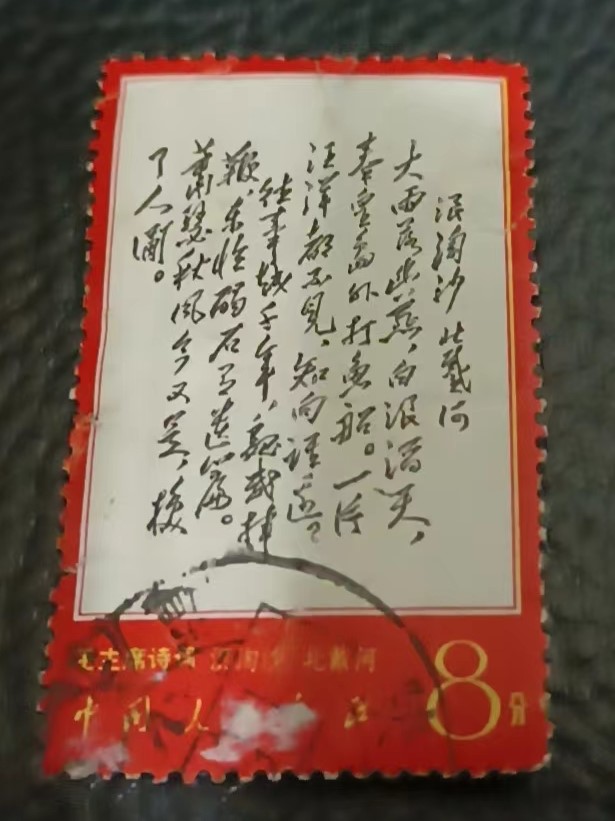 浪淘沙 北戴河
大雨落幽燕，白浪滔天，
秦皇岛外打鱼船。一片
汪洋都不见，知向谁边？
往事越千年，魏武挥
鞭，东临碣石有遗篇。
萧瑟秋风今又是，换
了人间。
毛主席诗词 浪淘沙 北戴河
中国人
8分